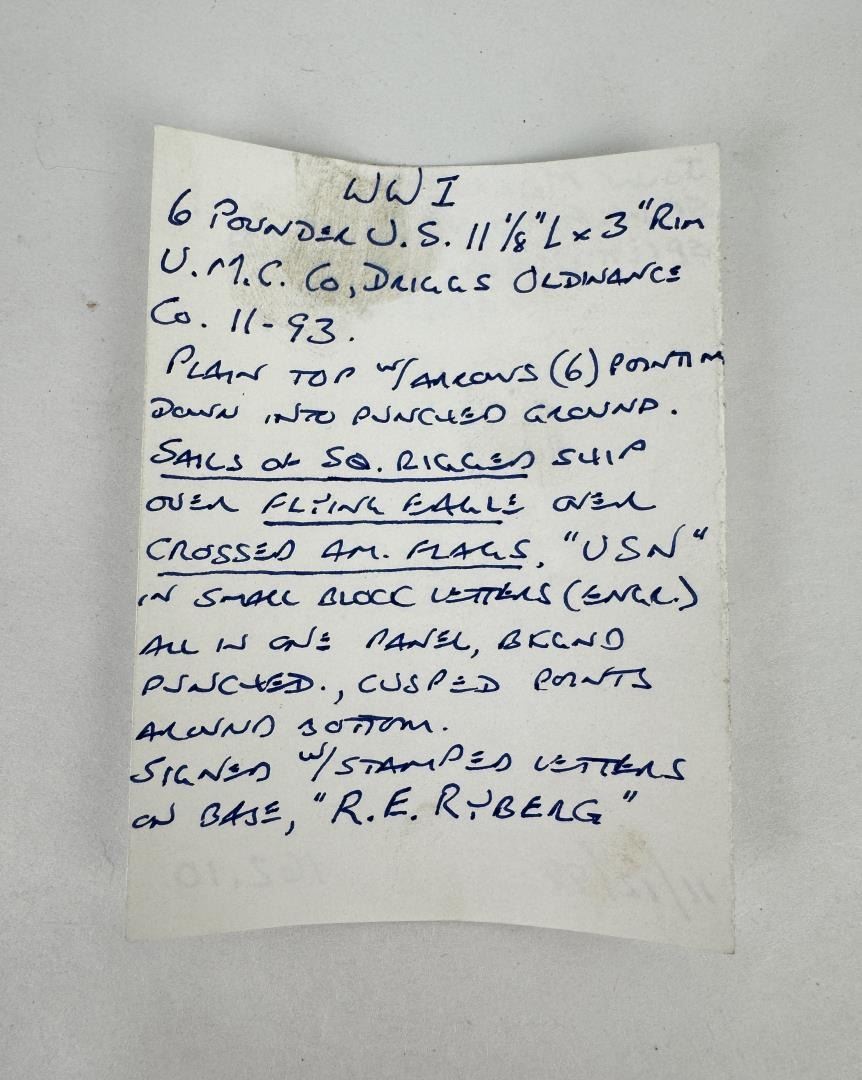 WWI
6 POUNDER U.S. 11 1/8" L x 3" RIM
U.M.C. Co, DRIGGS OLDINANCE
Co. 11-93.
PLAIN TOP w/ARROWS (6) POINTIN
DOWN INTO PUNCHED GROUND.
SAILS OF SQ. RIGGED SHIP
OVER FLYING EAGLE OVER
CROSSED AM. FLAGS, "USN"
IN SMALL BLOCK LETTERS (ENGR.)
ALL IN ONE PANEL, BKGND
PUNCHED., CUSPED POINTS
AROUND BOTTOM.
SIGNED w/STAMPED LETTERS
ON BASE, "R.E. RYBERG"